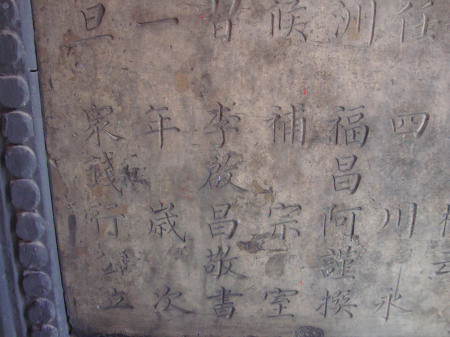 任四川永
洲福昌何謹撰
候補宗室
李啟昌敬書
一年歲次
旦眾錢行立